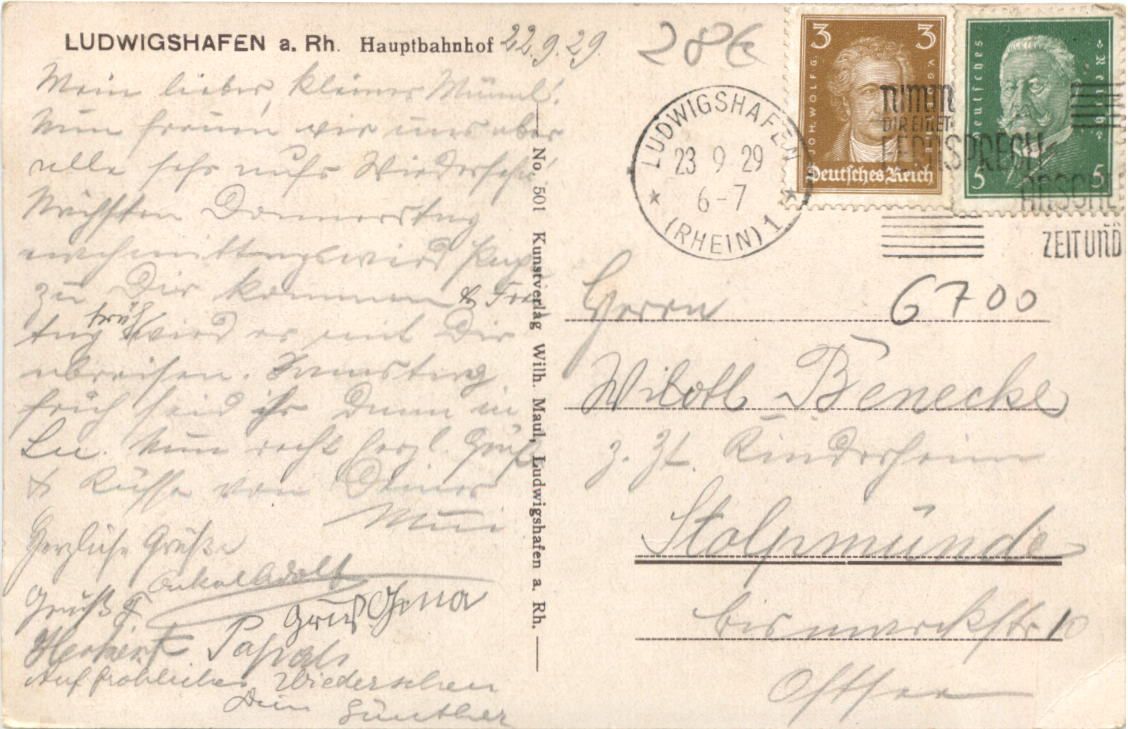 LUDWIGSHAFEN a. Rh. Hauptbahnhof 22.9.29.
Mein lieber, kleiner
Nun freuen wir uns aber
alle sehr aufs Wiedersehn!
Nächsten Donnerstag
nachmittags wird Papi
zu Dir kommen & Frei-
tag früh wird er mit Dir
abreisen. Samstag
früh seid ihr dann in
Lu. Nun recht herzl. Grüße
& Küsse von Deiner
Mutti
Herzliche Grüße
Onkel Adolf
Gruß
Gruß Oma
Herbert
Auf fröhliches Wiedersehen
Dein Günther
No. 501 Kunstverlag Wilh. Maul, Ludwigshafen a. Rh.
286
LUDWIGSHAFEN
23 9 29
6-7
(RHEIN) 1
3 3
JOH. WOLFG. V. GOETHE
Deutsches Reich
Deutsches Reich
5 5
NIMM
DIR EINEN
FERNSPRECH
ANSCHL
ZEIT UND
Herrn
6700
Benecke
z. Zt. Kinderheim
Stolpmünde
Bismarckstr 10
Ostsee